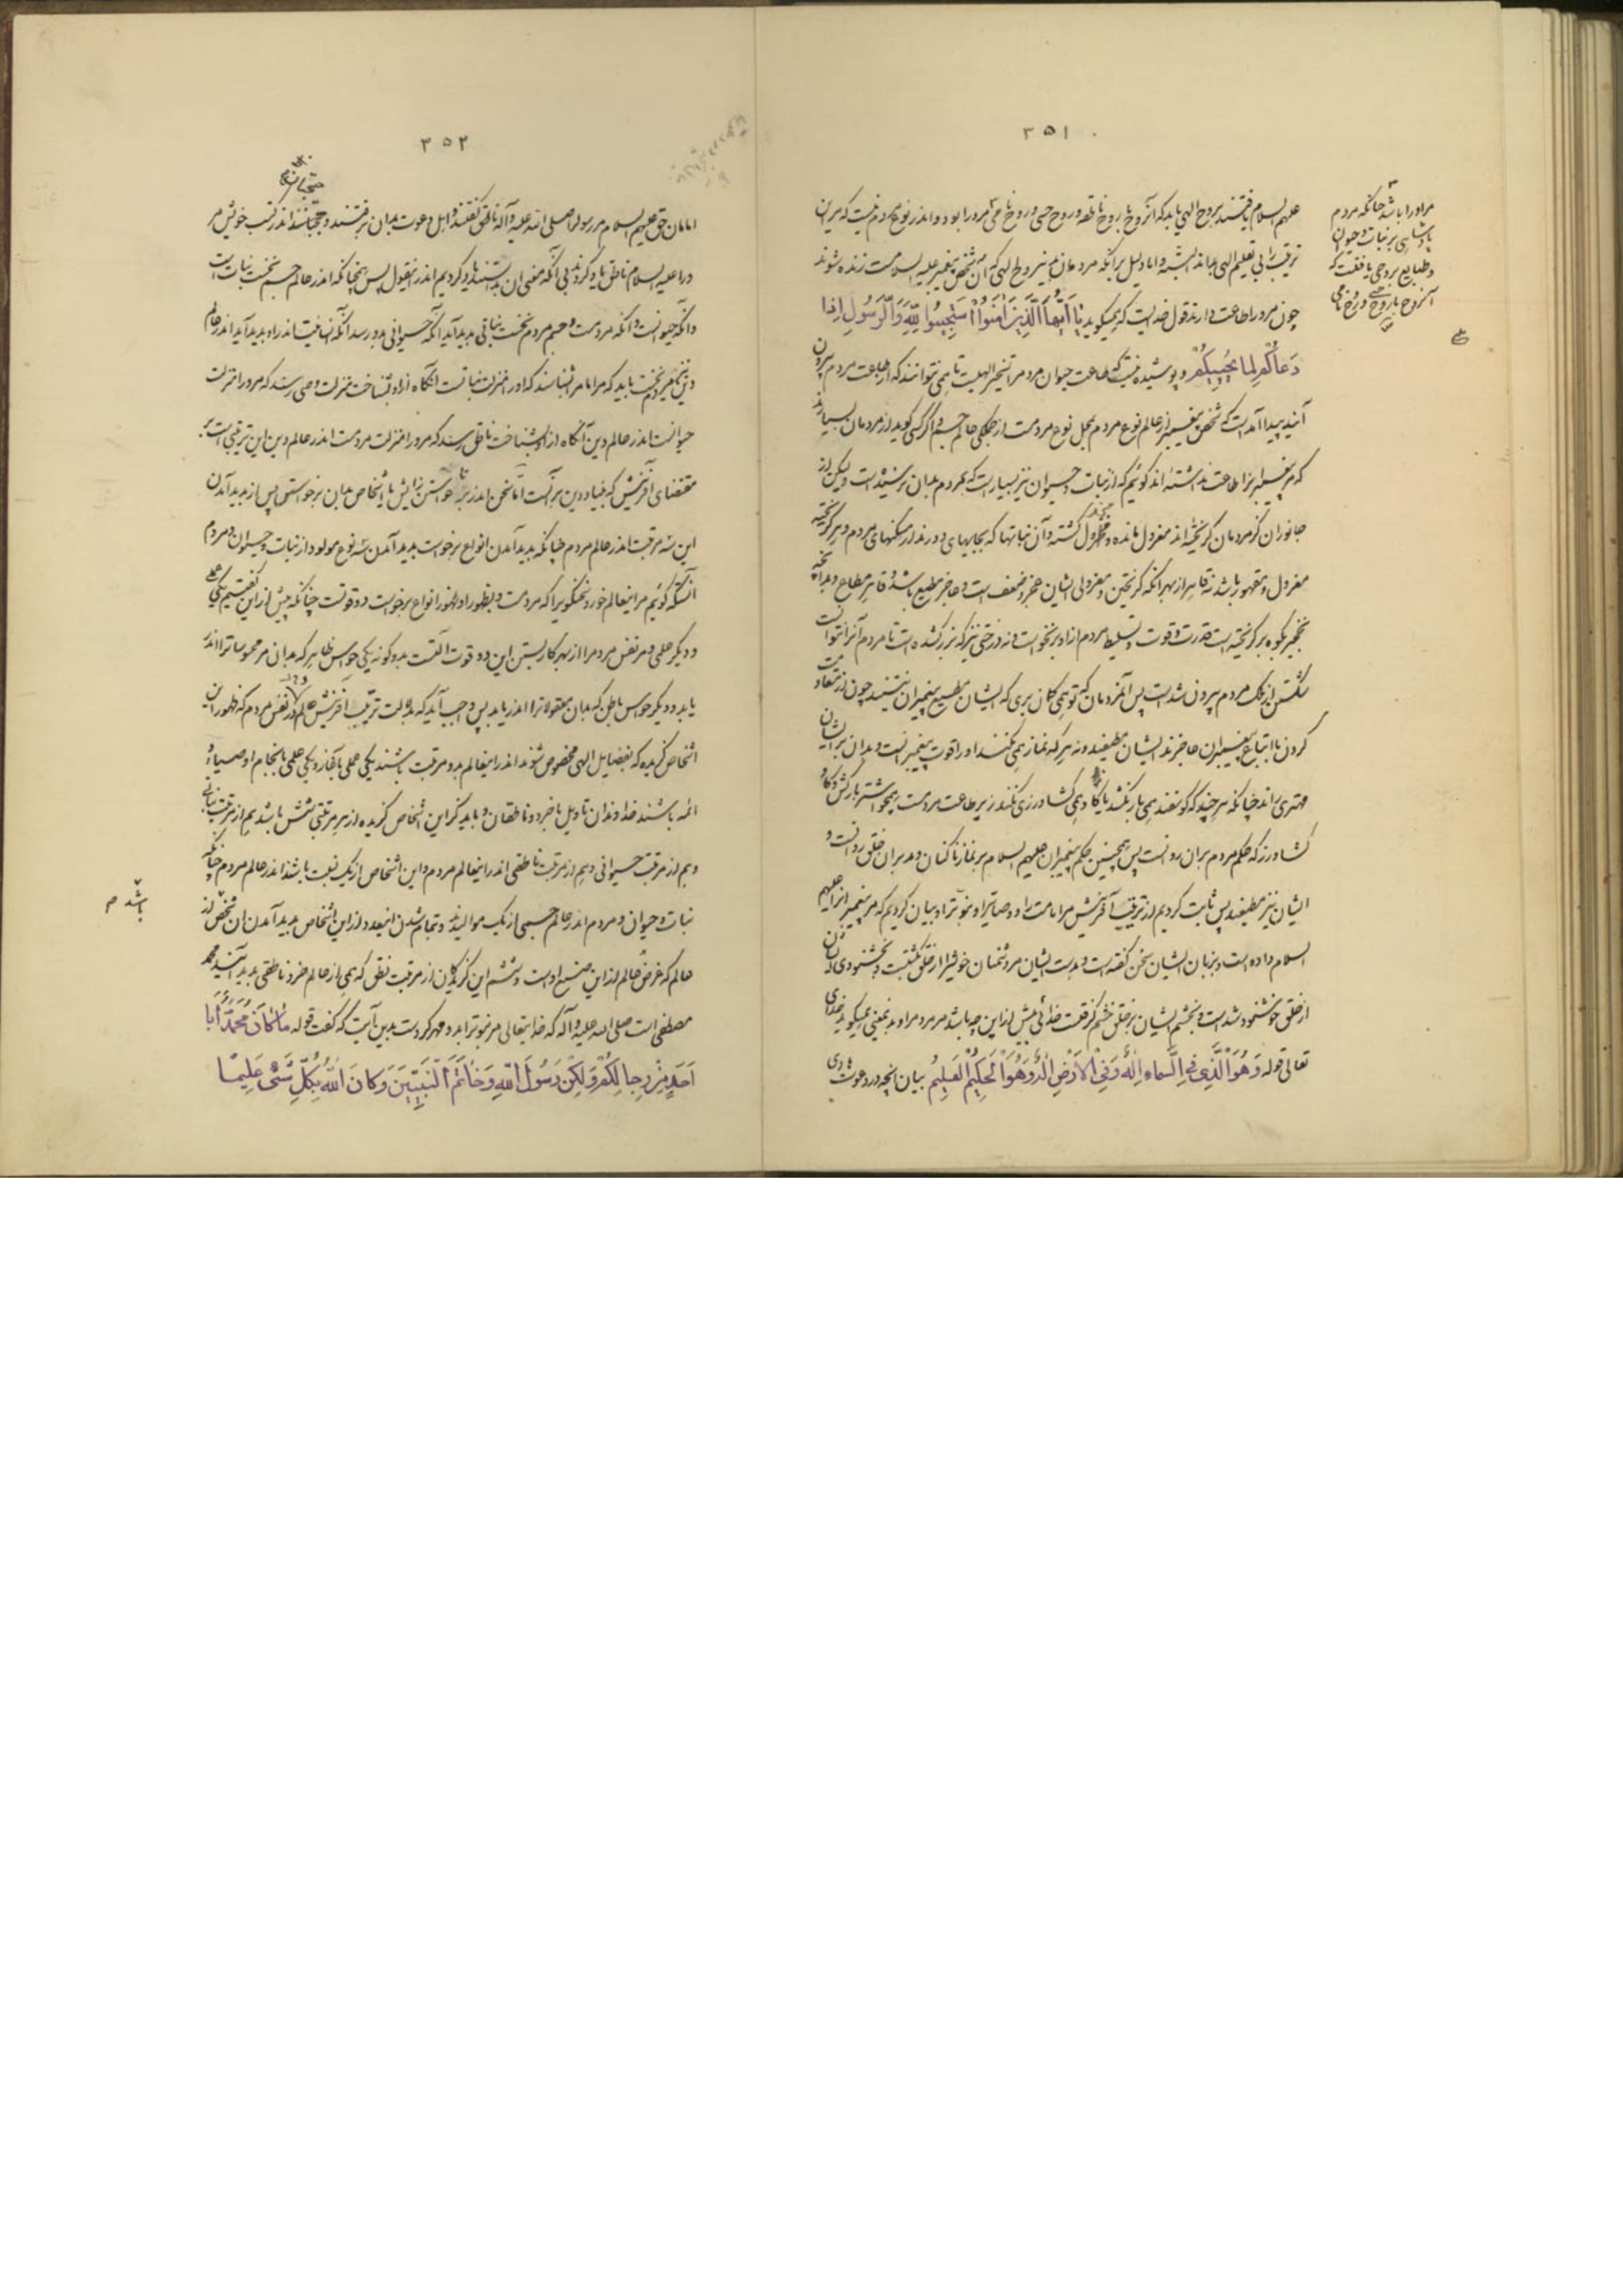 ۳۵۱
علیهم السلام یافتند بروح الهی باید که آن روح با روح ناطقه و روح حسی و روح نامی مر او را بود و اندر نوع مردم نیست که برین
ترتیب را بی تعلیم الهی بداند البته و اما دلیل بر آنکه مردمان نیز بروح الهی که آن مر شخص پیغمبر علیه السلام است زنده شوند
چون مرورا طاعت دارند قول خدایست که همیگوید یا أیها الذین آمنوا استجیبوا لله وللرسول إذا
دعاکم لما یحییکم و پوشیده نیست که طاعت حیوان مر مردم را تسخیر الهیست تا همی نتوانند که از طاعت مردم بیرون
آیند پیدا آمد است که شخص پیغمبر از عالم نوع مردم بمحل نوع مردمست از جملگی عالم جسم و اگر کسی گوید از مردمان بسیارند
که مر پیغمبران را طاعت نداشته اند گوئیم که از نبات و حیوان نیز بسیارست که مردم بدان نرسیده است ولیکن از
جانوران کز مردمان گریخته اند معزول مانده و گشته و آن نباتها که بجایهای دورند از مسکنهای مردم و هر گریخته
معزول و مقهور باشد نه قاهر از بهر آنکه گریختن و معزولی ایشان عجز و ضعف است و عاجز مطیع باشد و قاهر مطاع و بدانچه
نخجیر بکوه بر گریخته است قدرت و قوت و تسلیط مردم از او برنخواست و نه درختی نیز که بزرگ شده است تا مردم آنرا نتوانست
شکستن از ملک مردم بیرون شد است پس آن مردمان که تو همی گمان بری که ایشان مطیع پیغمبران نیستند چون از متفاوت
کردن با اتباع پیغمبران عاجزند ایشان مطیعند و نه هر که نماز همی نکند او را قوت پیغمبرانست و بدان برایشان
مهتری راند چنانکه هر چند که گوسفند همی بار نکشد یا گاو همی کشاورزی نکند زیر طاعت مردمست همچو اشتر بارکش و گاو
کشاورز که حکم مردم بران روانست پس همچنین حکم پیغمبران علیهم السلام بر نماز ناکنان و مدبران خلق روانست و
ایشان نیز مطیعند پس ثابت کردیم از ترتیب آفرینش مر امامت را و وصایت را و نبوت را و بیان کردیم که مر پیغمبرانرا علیهم
السلام داده است و بزبان ایشان سخن گفته است و بدست ایشان مر دشمنان خویش را از خلق بکشتست و بخشنودی ایشان
از خلق خوشنود شد است و بخشم ایشان بر خلق خشم گرفت خدائی بیش از این چه باشد مر مردم را و بدین معنی همیگوید خدای
تعالی قوله وهو الذی فی السماء إله وفی الأرض إله وهو الحکیم العلیم بیان آنچه در دعوت هادی
مر او را باشد چنانکه مردم
پادشاهی بر نبات و حیوان
و طبایع بروحی یافتست که
آن روح با روح حسی و روح نامی
۳۵۲
امامان حق علیهم السلام مر رسول را صلی الله علیه و آله ناطق گفتند و اهل دعوت بدان برفتند و حجتانند اندر کتب خویش مر
و را علیه السلام ناطق یاد کردند بی آنکه معنی آن بدانستند یاد کردیم اندر این قول پس همچنانکه اندر عالم جسم نخست نباتست
و آنگه حیوانست و آنگه مردمست و جسم مردم نخست نباتی پدید آید آنگه حیوانی بدو رسد آنگه انسانیت اندر او پدید آید اندر عالم
دین نیز مردم نخست باید که مر امام را بشناسد که او را منزلت نباتست آنگاه از او بشناخت منزلت وصی رسد که مرورا منزلت
حیوانست اندر عالم دین آنگاه از او بشناخت ناطق رسد که مرورا منزلت مردمست اندر عالم دین این ترتیبی است بر
مقتضای آفرینش که بنیاد دین بر آنست اما سخن اندر برخواستن زایش یا اشخاص بدان برخواستن پس از پدید آمدن
این سه مرتبت اندر عالم مردم چنانکه پدید آمدن انواع برخواست پدید آمدن سه نوع مولود از نبات و حیوان و مردم
آنستکه گوئیم مر اینعالم خورد سخنگوی را که مردمست و بظهور او ظهور انواع برخواست دو قوتست چنانکه پیش از این گفتیم یکی عملی
و دیگر علمی و مر نفس مردم را از بهر کار بستن این دو قوت آلتست بدو گونه یکی حواس ظاهر که بدان مر محسوسات را اندر
یابد و دیگر حواس باطن که بدان معقولات را اندر یابد پس واجب آید که بدلالت ترتیب آفرینش عالم در نفس مردم که ظهور این
اشخاص گزیده که بفضایل الهی مخصوص شوند اندر اینعالم بدو مرتبت باشند یکی عملی بآغاز و یکی علمی بانجام اوصیاء و
ائمه باشند خداوندان تاویل با خرد و ناطقان و باید کز این اشخاص گزیده از هر مرتبتی شش باشد هم از مرتبت نباتی
و هم از مرتبت حیوانی و هم از مرتبت ناطقی اندر اینعالم مردم و این اشخاص از یک نسبت باشند اندر عالم مردم چنانکه
نبات و حیوان و مردم اندر عالم جسمی از یک موالیدند و تمام شدن این عدد از این اشخاص پدید آمدن آن شخص از
عالم که غرض عالم از این صنع اوست و ششم این گزیدگان از مرتبت نطق که همی از عالم خرد ناطقی پدید آیند محمد
مصطفی است صلی الله علیه و آله که خدایتعالی مر نبوت را بدو مهر کردست بدین آیت که گفت قوله ما کان محمد أبا
أحد من رجالکم ولکن رسول الله وخاتم النبیین وکان الله بکل شیء علیما
باشد م